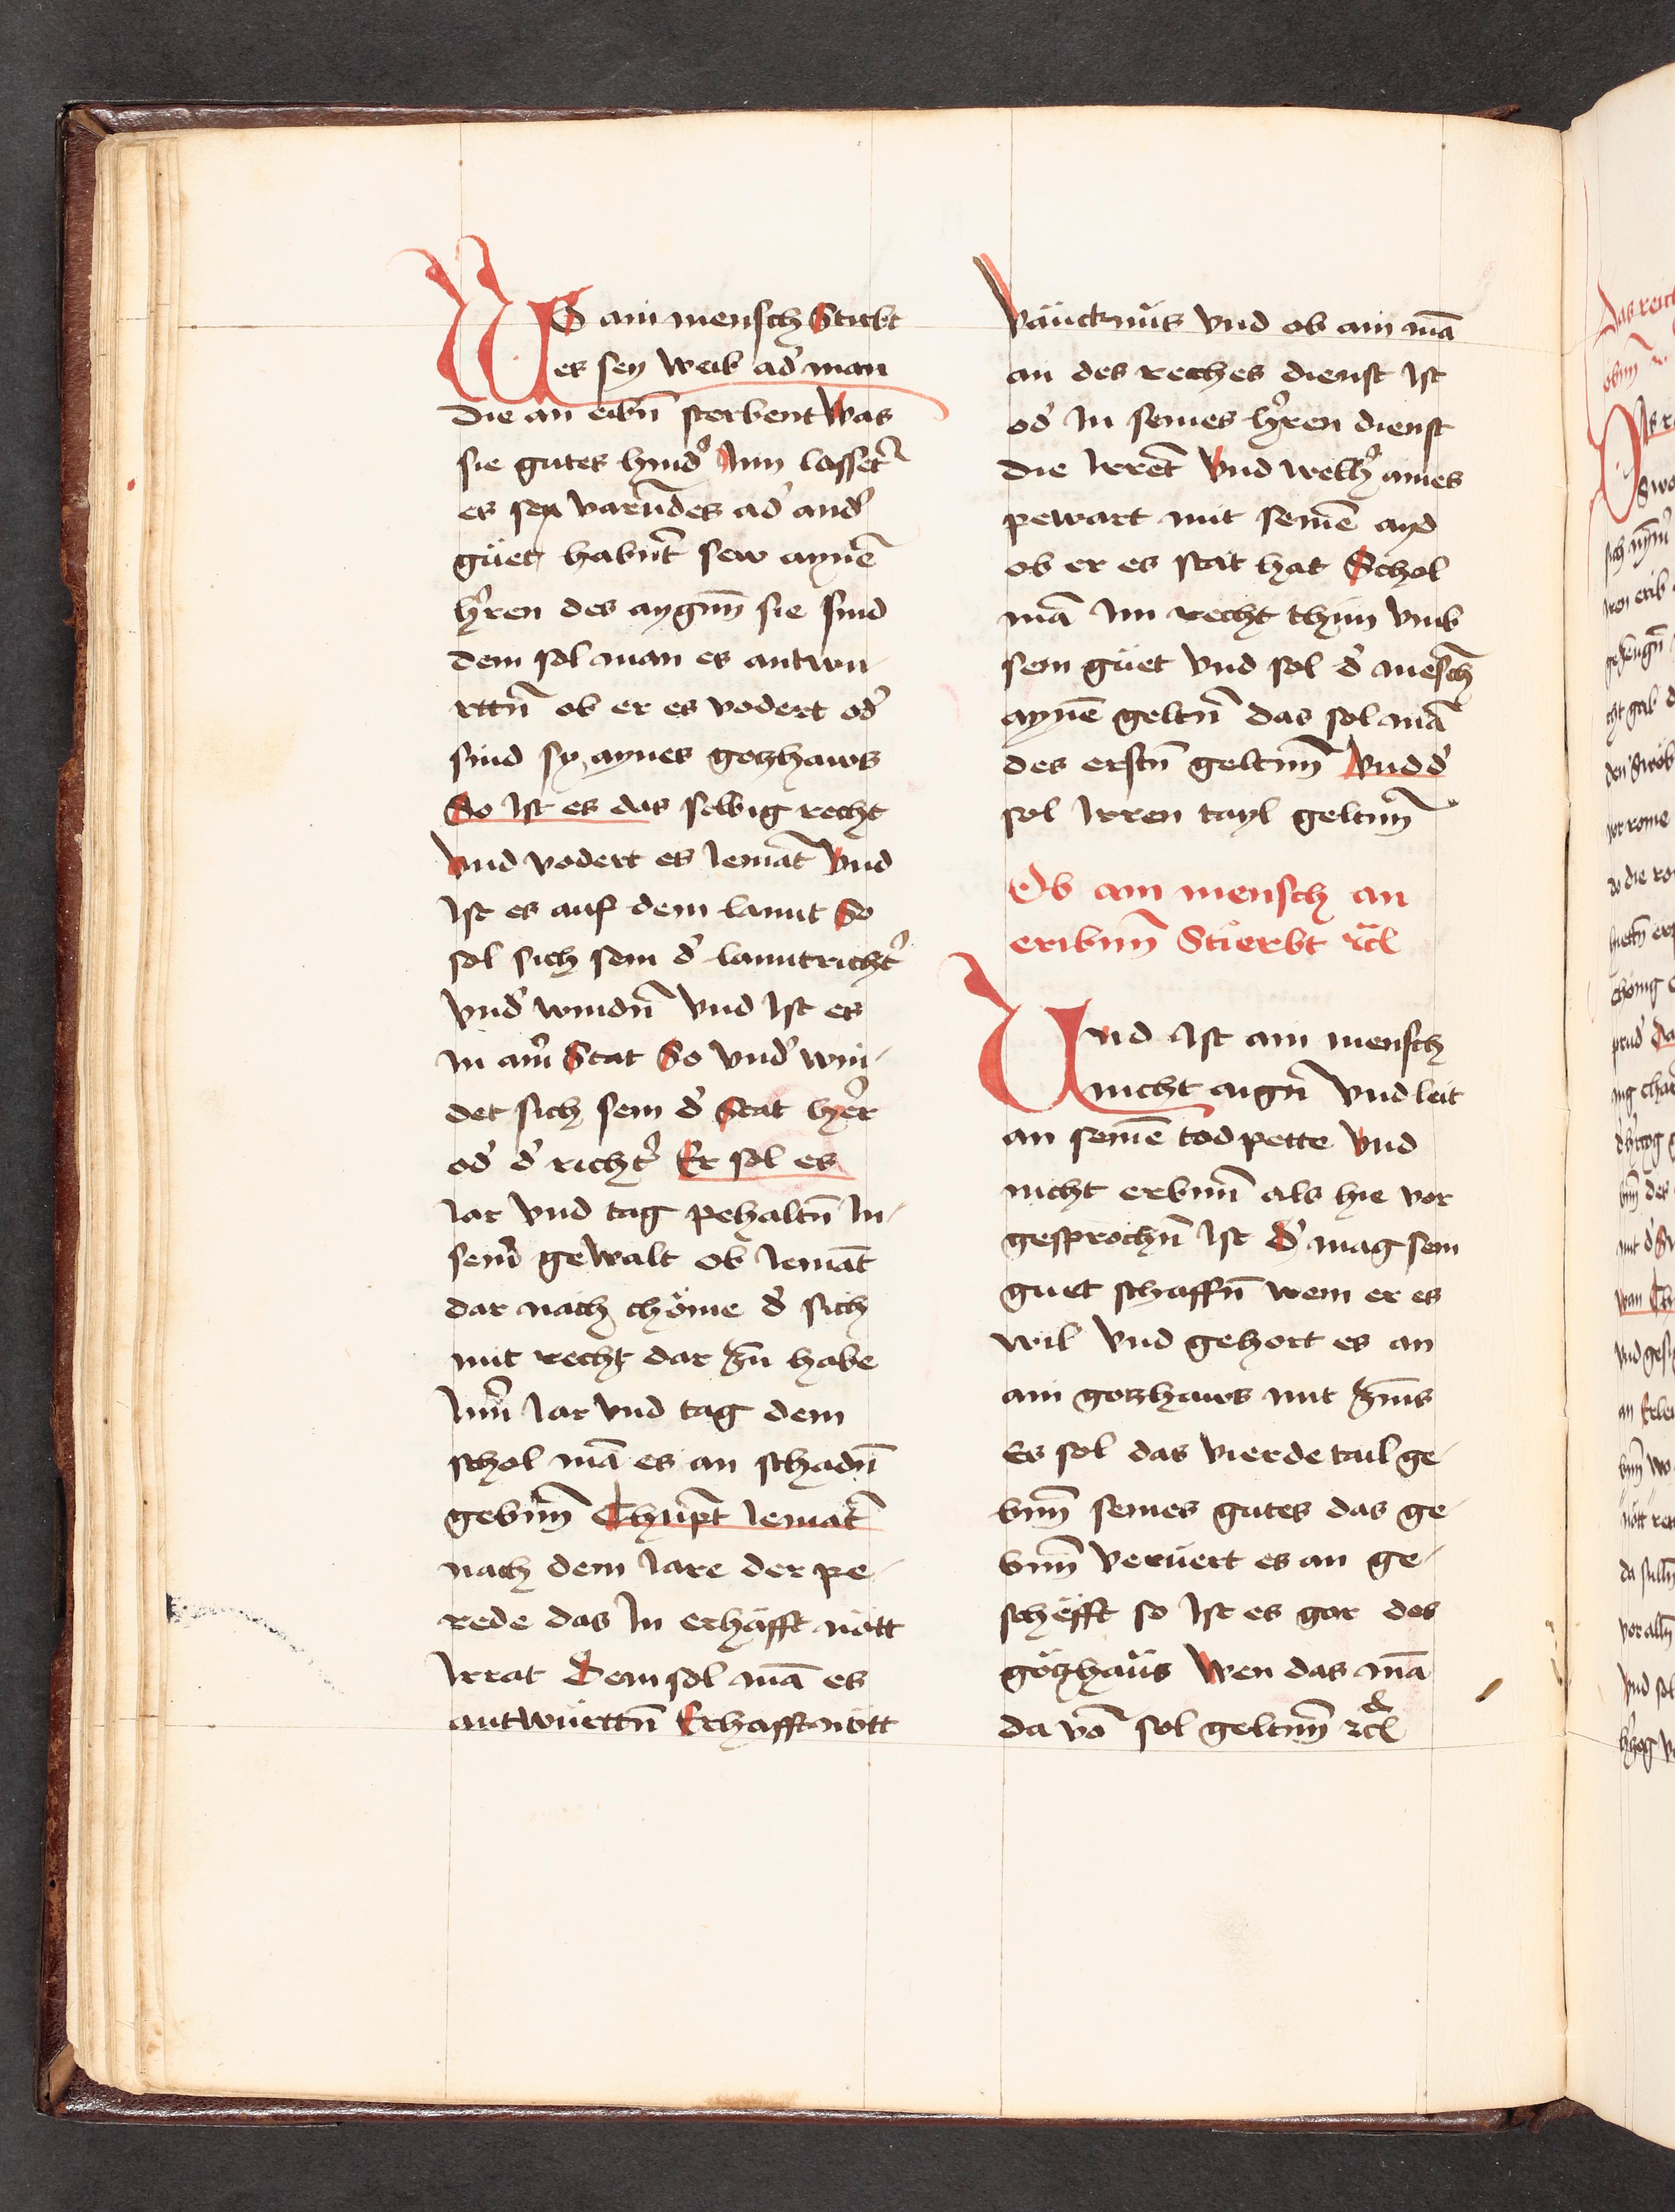 WO ain mensch Stirbt
es sey weib ad' man
die an eibn̄ sterbent Was
sie gutes hind' Inn lasset̄
es sey varn̄des ad' and'
güet, habnt̄ sew aynē
h'ren des aygnn̄ sie sind
dem sol man es antwu-
rttn̄ ob er es vodert od'
sind sy, aynes gotzhaws
So Ist es das selbig recht
Vnd vodert es Iemāt Vnd
Ist es auf dem lannt So
sol sich sein d' lanntricht'
vnd' windn̄ Vnd Ist es
In aim' Stat So vnd' win-
det sich sein d' Stat her'
od' d' richt' Er sol es
Iar vnd tag pehaltn̄ In-
sein' gewalt ob Iemāt
dar nach chöme d' sich
mit recht dar zu habe
Inn' Iar vnd tag dem
schol mā es an schadn̄
gebnn̄ Chupt̄ Iemat̄
nach dem Iare der pe-
rede das In echäfft nött
Irrat Dem sol mā es
antwuerttn̄ Echafft nött
Väncknüs Vnd ob ain mā
an des reches dienst Ist
od' In seines h'ren dienst
die Irret̄ Vnd welh' aines
pewart mit seinē ayd
ob er es stät hat Schol
mā Im recht thun vmb
sein güet Vnd sol d' mesch̄
aynē geltn̄ das sol mā
des erstn̄ geltnn̄ Vnd d'
sol Irren tayl geltnn̄
Ob ain mensch an
eribnn̄ Stierbt rcl
Vnd Ist ain mensch
nicht aign̄ Vnd leit
an seinē tod pette Vnd
nicht erbnn̄ als hie vor
gesprochn̄ Ist D' mag sein
guet schaffn̄ wem er es
wil Vnd gehort es an
ain gotzhaws mit zins
Er sol das vierde tail ge-
bnn̄ seines gutes das ge-
bnn̄ veruert es an ge-
schëfft so Ist es gar des
götzhaüs Wen das mā
da vō sol geltnn̄ rcl